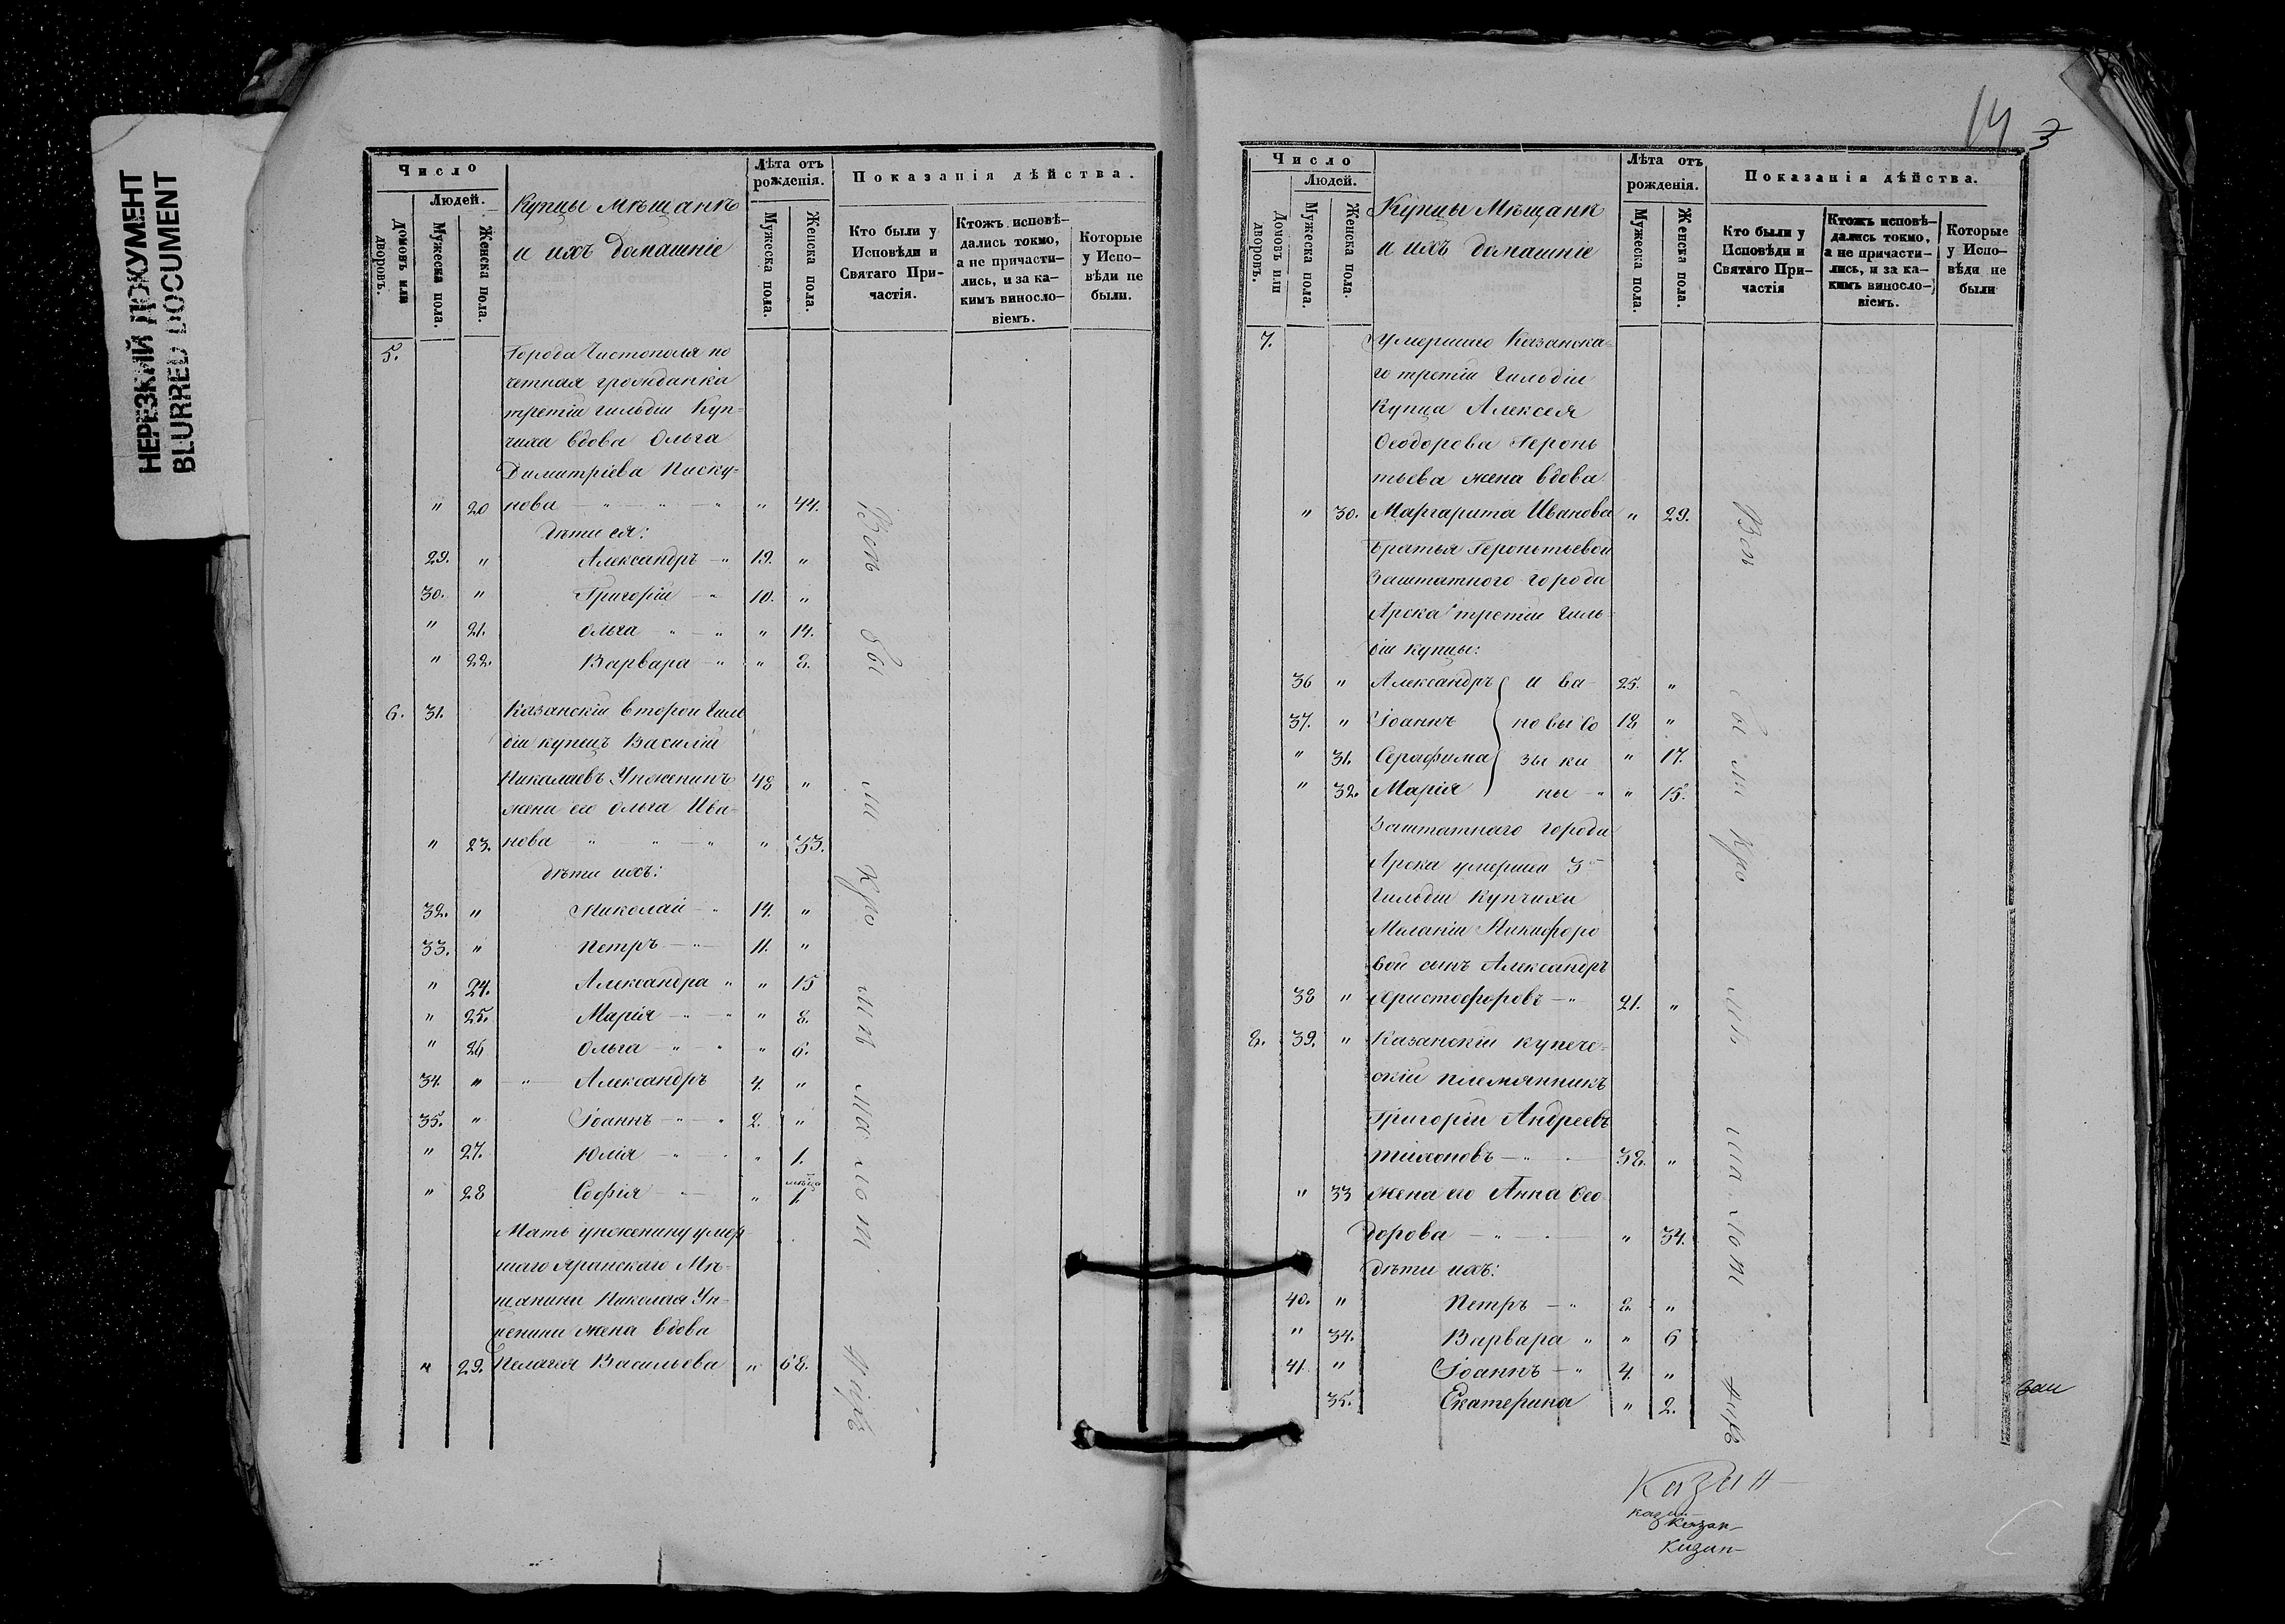 НЕРЕЗКИЙ ДОКУМЕНТ
BLURRED DOCUMENT
Число
Людей.
Домовъ или дворовъ.
Мужеска пола.
Женска пола.
Купцы Мѣщанъ
и ихъ домашніе
Лѣта отъ рожденія.
Мужеска пола.
Женска пола.
Показанія дѣйства.
Кто были у Исповѣди и Святаго Причастія.
Ктожъ исповѣ-
дались токмо,
а не причасти-
лись, и за ка-
кимъ винослo-
віемъ.
Которые
у Испо-
вѣди не
были.
5. Города Чистополя по
четная гражданка
третіи гильдіи Куп-
чиха вдова Ольга
Димитріева Писку-
" 20 нова " " 44.
Дѣти ея:
29. " Александръ 19. "
30. " Григорій 10. "
" 21. Ольга " 14.
" 22. Варвара " 8.
6. 31. Казанскій второй гиль
діи купецъ Василій
Николаевъ Унженинъ 48 "
жена его Ольга Ива-
" 23. нова " 33.
дѣти ихъ:
32. " Николай 14. "
33. " Петръ 11. "
" 24. Александра " 15
" 25. Марія " 8.
" 26 Ольга " 6.
34. " Александръ 4. "
35. " Іоаннъ 2. "
" 27. Юлія " 1.
" 28 Софія " 1
Мать унженину умер
шаго Яранскаго Мѣ-
щанина Николая Ун-
женина жена вдова
" 29. Пелагея Васильева " 68.
14 3
Число
Людей.
Домовъ или дворовъ.
Мужеска пола.
Женска пола.
Купцы Мѣщанъ
и ихъ домашніе
Лѣта отъ рожденія.
Мужеска пола.
Женска пола.
Показанія дѣйства.
Кто были у Исповѣди и Святаго Причастія
Ктожъ исповѣ-
дались токмо,
а не причасти-
лись, и за ка-
кимъ винослo-
віемъ.
Которые
у Испо-
вѣди не
были
7. Умершаго Казанска-
го третіи Гильдіи
Купца Алексея
Ѳеодорова Геронь
тьева жена вдова
" 30. Маргарита Иванова " 29.
Братья Геронтьевой
Заштатного города
Арска третіи Гиль-
діи купцы:
36 " Александръ И ва- 25. "
37. " Іоаннъ новы Со 18 "
" 31. Серафима зы ки " 17.
" 32. Марія ны " 15.
Заштатнаго города
Арска умершей 3
Гильдіи Купчихи
Меланіи Никифоро
вой сынъ Александръ
38 " Христофоровъ 21. "
8. 39. " Казанскій купече-
скій племянникъ
Григорій Андреевъ
Тихоновъ 38. "
" 33 жена его Анна Ѳео
дорова " 34.
дѣти ихъ:
40. " Петръ 8. "
" 34. Варвара " 6
41. " Іоаннъ 4. "
35. Екатерина " 2.
Казан-
Казан-
Казан-